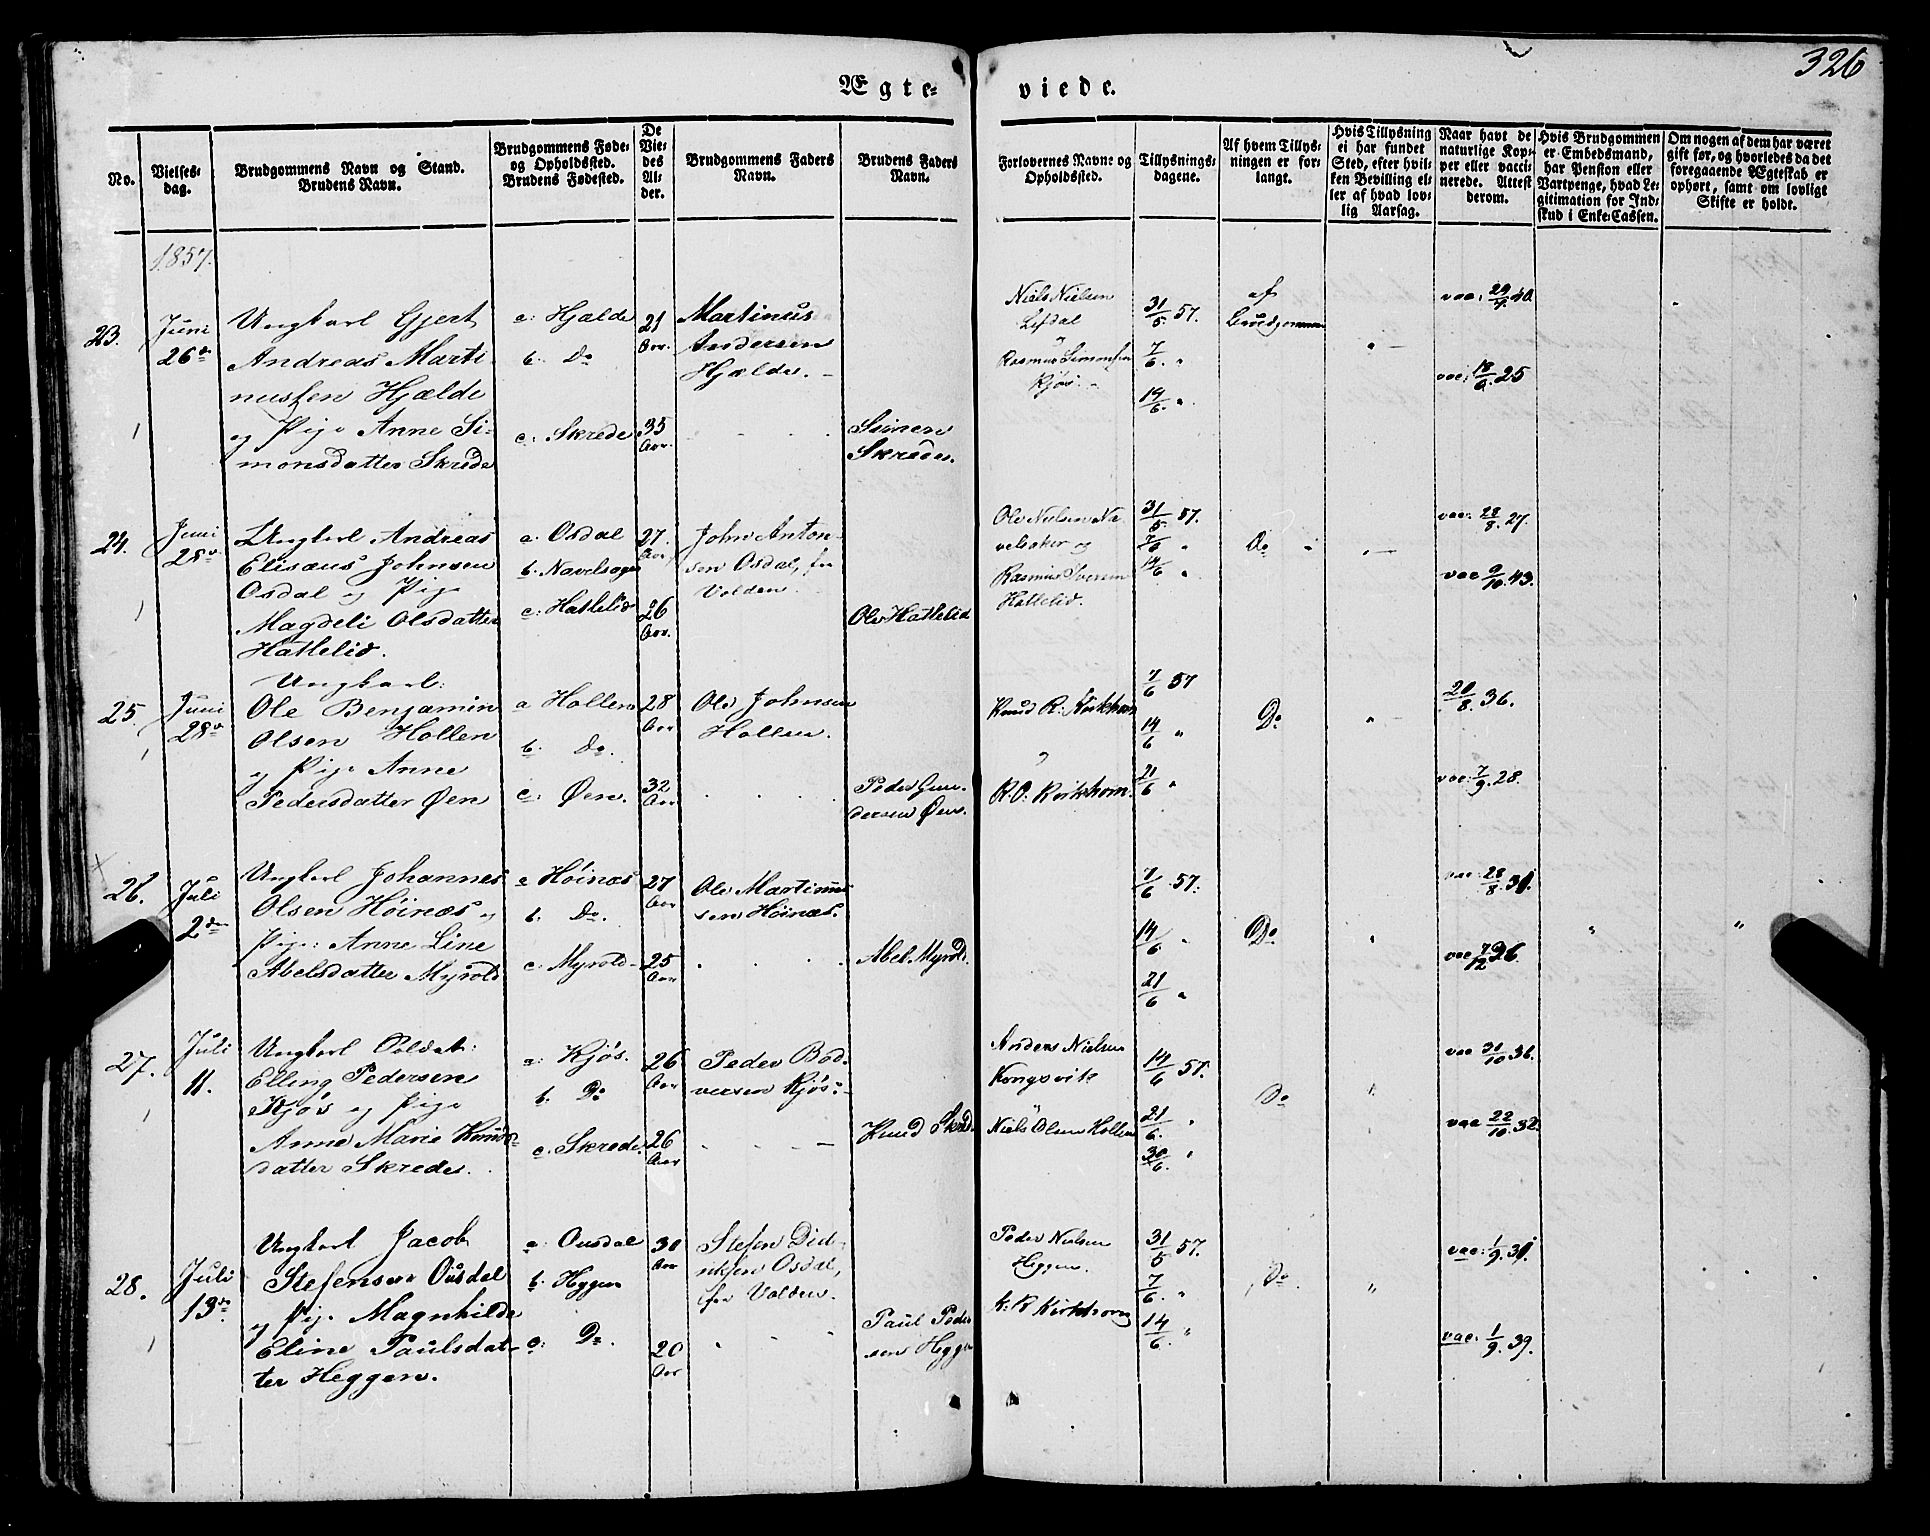 326
Ægte-
viede.
No.
Vielses-
dag.
Brudgommens Navn og Stand.
Brudens Navn.
Brudgommens Føde-
og Opholdssted.
Brudens Fødested.
De
Vie-
des
Al-
der.
Brudgommens Faders
Navn.
Brudens Faders
Navn.
Forlovernes Navne og
Opholdssted.
Tillysnings-
dagene.
Af hvem Tillys-
ningen er for-
langt.
Hvis Tillysning
ei har fundet
Sted, efter hvil-
ken Bevilling el-
ler af hvad lov-
lig Aarsag.
Naar havt de
naturlige Kop-
per eller vacci-
nerede. Attest
derom.
Hvis Brudgommen
er Embedsmand,
har Pension eller
Vartpenge, hvad Le-
gitimation for Ind-
skud i Enke-Cassen.
Om nogen af dem har været
gift før, og hvorledes da det
foregaaende Ægteskab er
ophørt, samt om lovligt
Skifte er holdt.
1857.
23.
Juni
26de
Ungkarl Gjert
Andreas Marti-
nussen Hjælde
og Pige Anne Si-
monsdatter Skrede
a: Hjelde
b. Do
c: Skrede
21
Aar.
35
Aar.
Martinus
Andersen
Hjelde. -
Simen
Skrede.
Niels Nielsen
Lefdal
"
Rasmus Simonsen
Kjøs. -
31/5. 57.
7/6. "
14/6. "
af
Brudgommen
" -
vac: 29/7. 40.
vac: 18/9. 25
24.
Juni
28de
Ungkarl Andreas
Elisæus Johnsen
Osdal og Pige
Magdeli Olsdatter
Hattelid.
a: Osdal
b. Navelsager
c: Hattelid
27.
Aar.
26
Aar.
John Anton-
sen Osdal, fra
Volden.
Ole Hattelid
Ole Nielsen Na-
velsaker og
Rasmus Iversen
Hattelid.
31/5. 57.
7/6 "
14/6 "
Do "
" -
vac: 28/8. 27.
vac 9/10. 43.
25.
Juni
28de
Ungkarl:
Ole Benjamin
Olsen Hollen
og Pige Anne
Pedersdatter Øen
a Hollen
b. Do.
c: Øen.
28
Aar
32
Aar
Ole Johnsen
Hollen.
Peder Gun-
dersen Øen.
Knud R. Kirkhorn
"
R. O. Kirkhorn.
7/6 57
14/6 "
21/6 "
Do
" -
20/8. 36.
vac: 7/9. 28.
26.
Juli
2den
Ungkarl Johannes
Olsen Höinæs og
Pige: Anne Line
Abelsdatter Myrold
a Höinæs
b. Do.
c: Myrold-
27
Aar
25
Aar
Ole Martinus-
sen Höinæs.
Abel Myrold.
7/6 57.
14/6 "
21/6 "
Do
"
"
"
vac: 28/8. 31.
vac 7/12 26.
27.
Juli
11.
Ungkarl Soldat:
Elling Pedersen
Kjøs og Pige
Anne Marie Knuds-
datter Skrede.
a: Kjøs.
b. Do
c. Skrede.
26
Aar
26
Aar
Peder Bod-
versen Kjøs. -
Knud Skrede
Anders Nielsen
Kongsvik
"
Niels Olsen Hollen
14/6 57.
21/6. "
30/6. "
Do
"
vac 31/10. 36.
vac 22/10. 32.
28.
Juli
13de
Ungkarl Jacob
Stefensen Ousdal
og Pige Magnhilde
Eline Paulsdat-
ter Heggen.
a. Ousdal
b. Heggen
c: Do.
30
Aar
20
Aar
Stefen Did-
riksen Osdal,
fra Volden.
Paul Peder-
sen Heggen
Peder Nielsen
Heggen.
K: R Kirkhorn
31/5 57.
7/6. "
14/6. "
Do
"
vac: 1/9. 31.
vac: 1/9. 39.